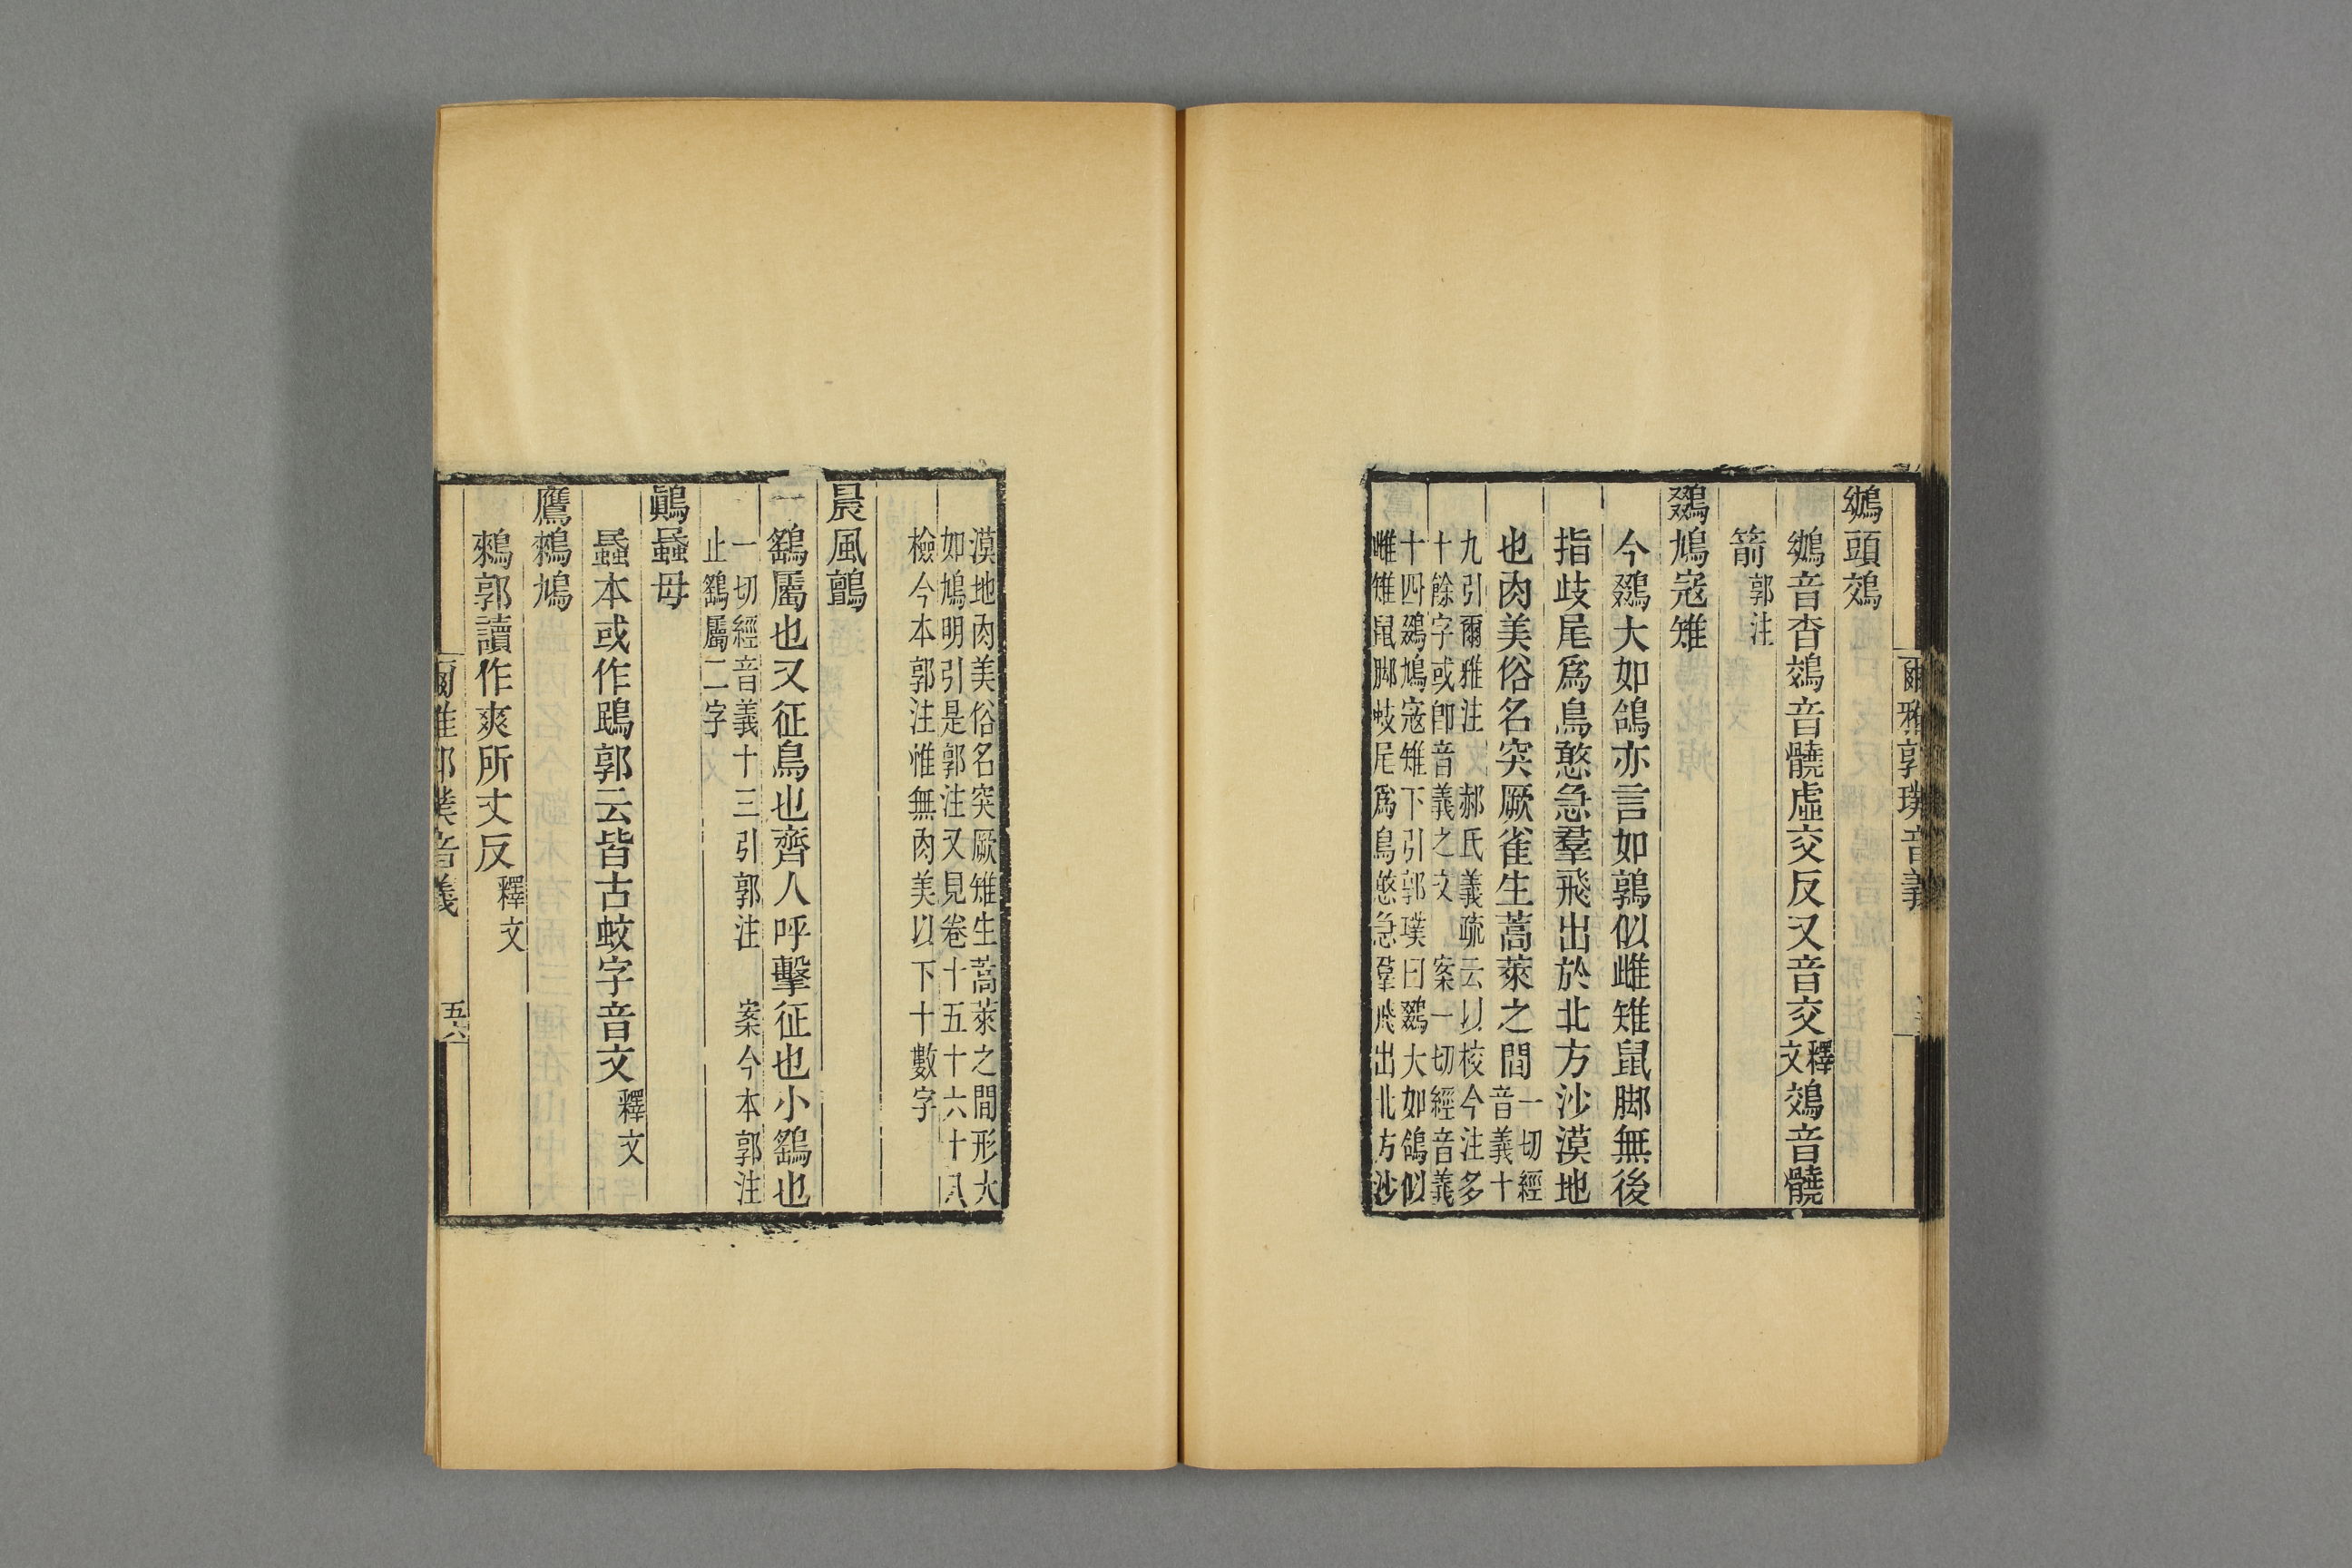 爾雅郭璞音義
鴢頭鵁
鴢音杳鵁音髐虛交反又音交釋文鵁音髐
箭郭注
鵽鳩寇雉
今鵽大如鴿亦言如鶉似雌雉鼠脚無後
指歧尾為鳥憨急羣飛出於北方沙漠地
也肉美俗名突厥雀生蒿萊之間一切經音義十
九引爾雅注 郝氏義疏云以校今注多
十餘字或卽音義之文 案一切經音義
十四鵽鳩寇雉下引郭璞曰鵽大如鴿似
雌雉鼠脚歧尾為鳥憨急羣飛出北方沙
漠地肉美俗名突厥雉生蒿萊之間形大
如鳩明引是郭注又見卷十五十六十八
檢今本郭注惟無肉美以下十數字
晨風鸇
鷂屬也又征鳥也齊人呼擊征也小鷂也
一切經音義十三引郭注 案今本郭注
止鷂屬二字
鷏蟁母
蟁本或作鴖郭云皆古蚊字音文釋文
鷹鶆鳩
鶆郭讀作爽所丈反釋文
爾雅郭璞音義 五六